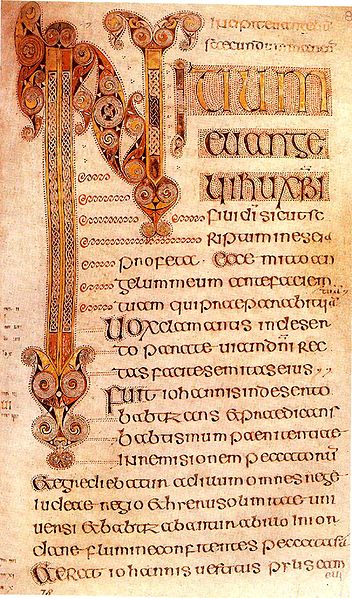 INITIUM
euange
lii ihu xpi
fili di sicut sc
riptum in esaia
profeta Ecce mitto an
gelum meum ante faciem
tuam qui praeparabit uiam
tuam
Uox clamantis in deser
to parate uiam dni rec
tas facite semitas eius
Fuit iohannis in deserto
babtizans & praedicans
babtismum paenitentiae
in remisionem peccatorum
Et egrediebatur ad illum omnes
iudeae regio & hierusolimitae uni
uersi & babtizabantur ab illo in ior
dane flumine confitentes peccata sua
Et erat iohannis uestitus pilis cam